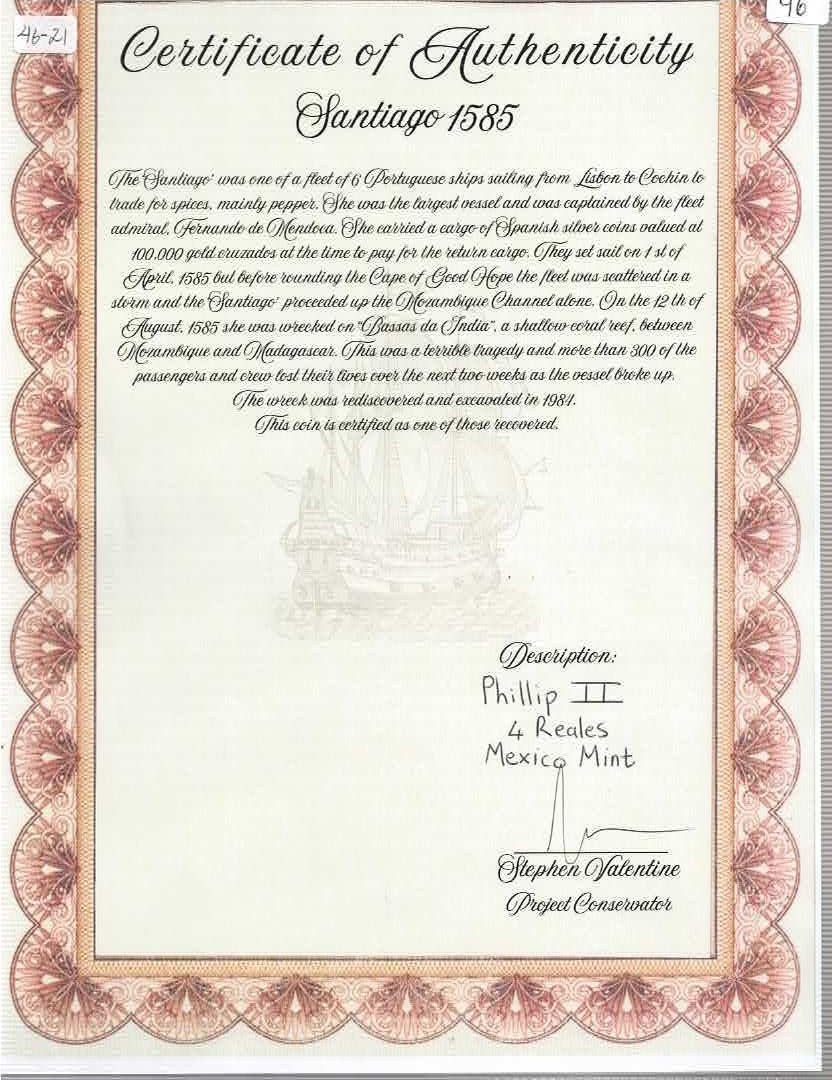 46-21
46
Certificate of Authenticity
Santiago 1585
The 'Santiago' was one of a fleet of 6 Portuguese ships sailing from Lisbon to Cochin to
trade for spices, mainly pepper. She was the largest vessel and was captained by the fleet
admiral, Fernando de Mendoca. She carried a cargo of Spanish silver coins valued at
100.000 gold cruzados at the time to pay for the return cargo. They set sail on 1 st of
April, 1585 but before rounding the Cape of Good Hope the fleet was scattered in a
storm and the 'Santiago' proceeded up the Mozambique Channel alone. On the 12 th of
August, 1585 she was wrecked on "Bassas da India", a shallow coral reef, between
Mozambique and Madagascar. This was a terrible tragedy and more than 300 of the
passengers and crew lost their lives over the next two weeks as the vessel broke up.
The wreck was rediscovered and excavated in 1984.
This coin is certified as one of those recovered.
Description:
Phillip II
4 Reales
Mexico Mint
Stephen Valentine
Project Conservator